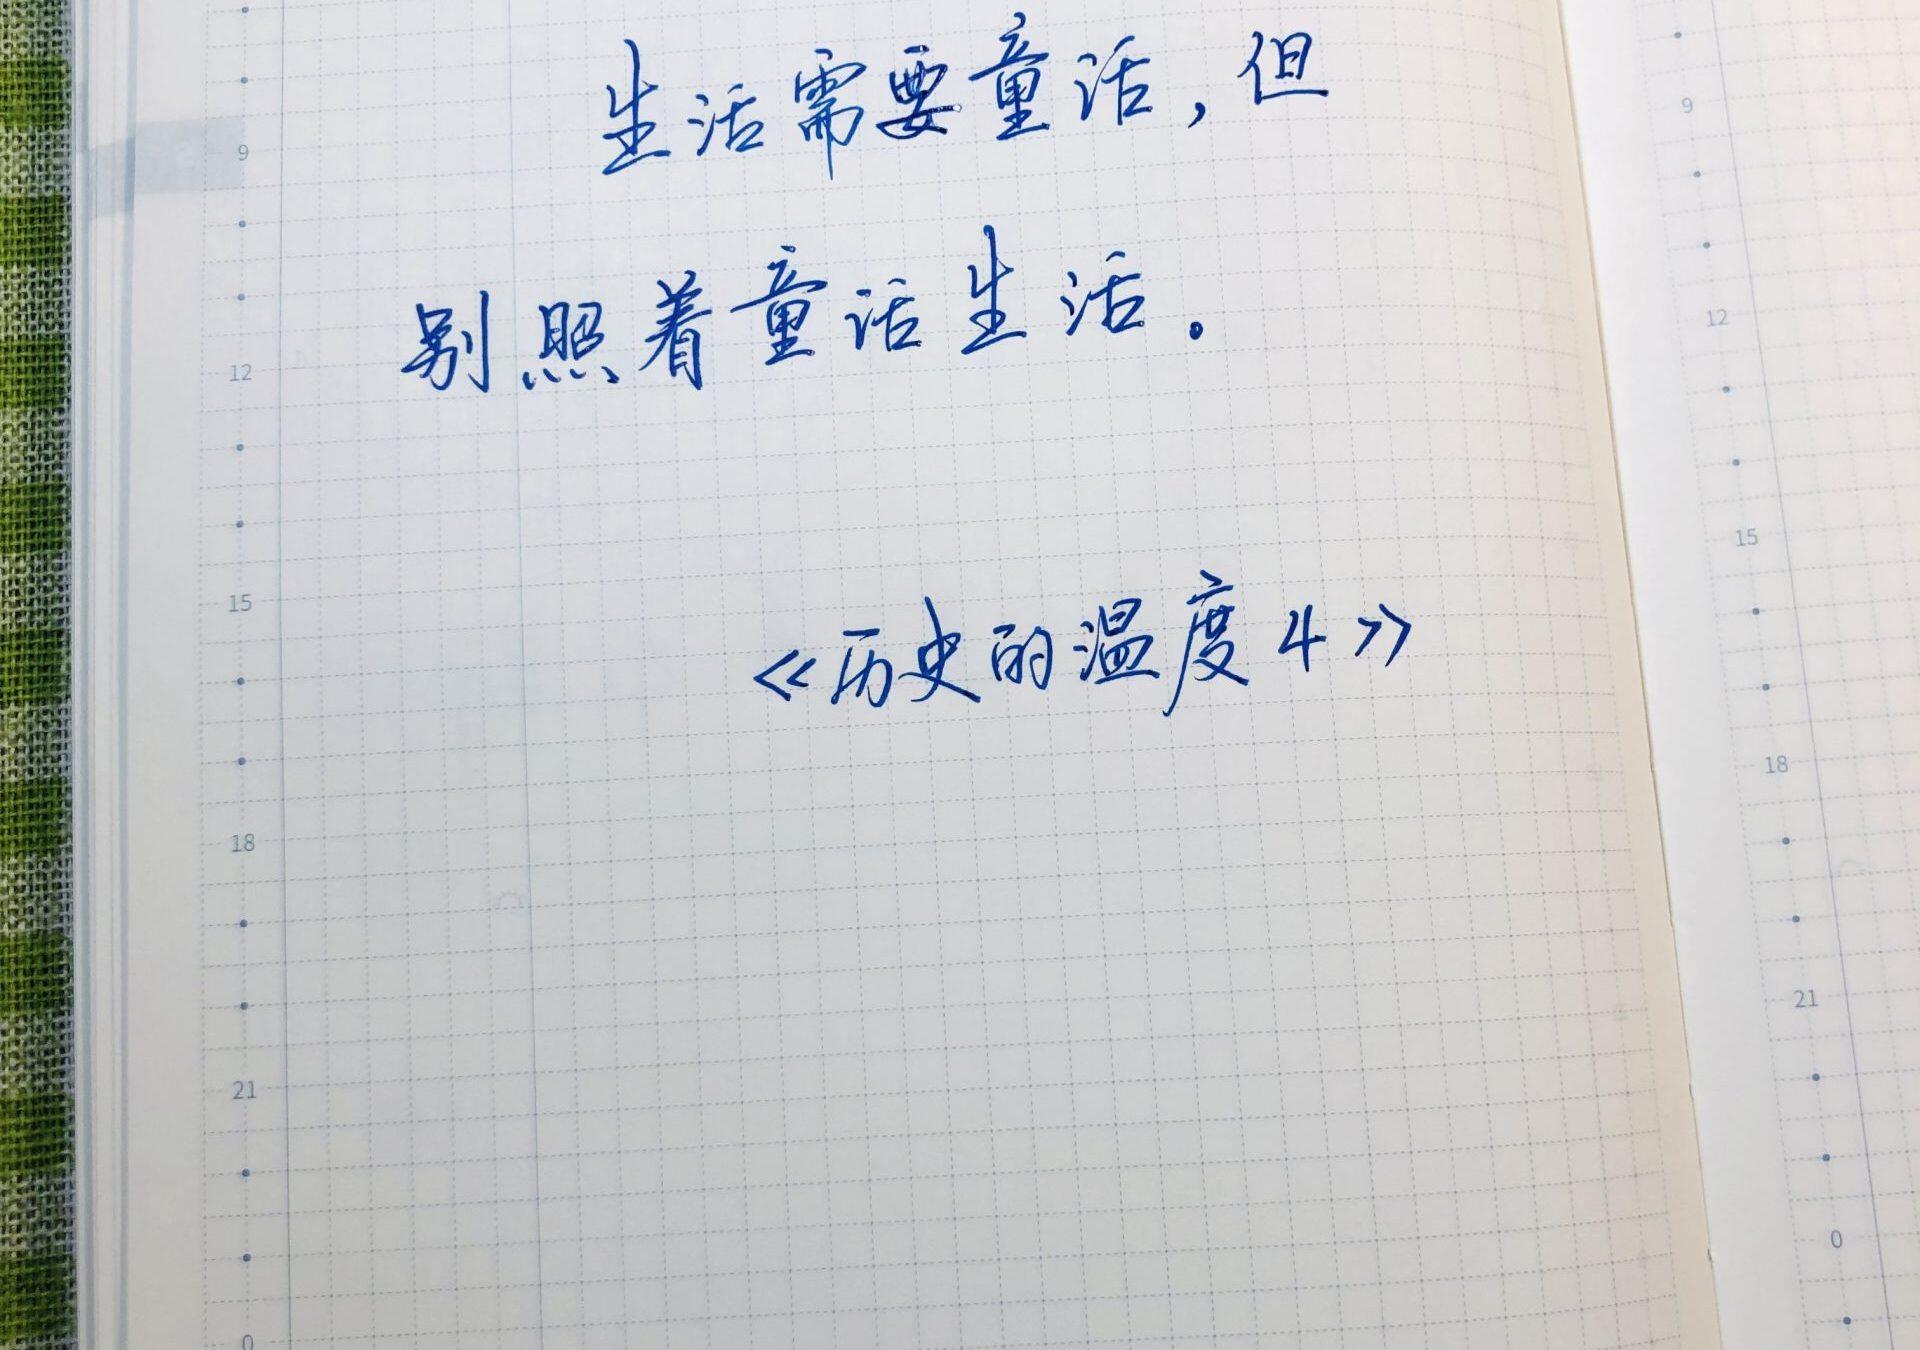 生活需要童话，但
别照着童话生活。
《历史的温度4》
9
12
15
18
21
0
9
12
15
18
21
0